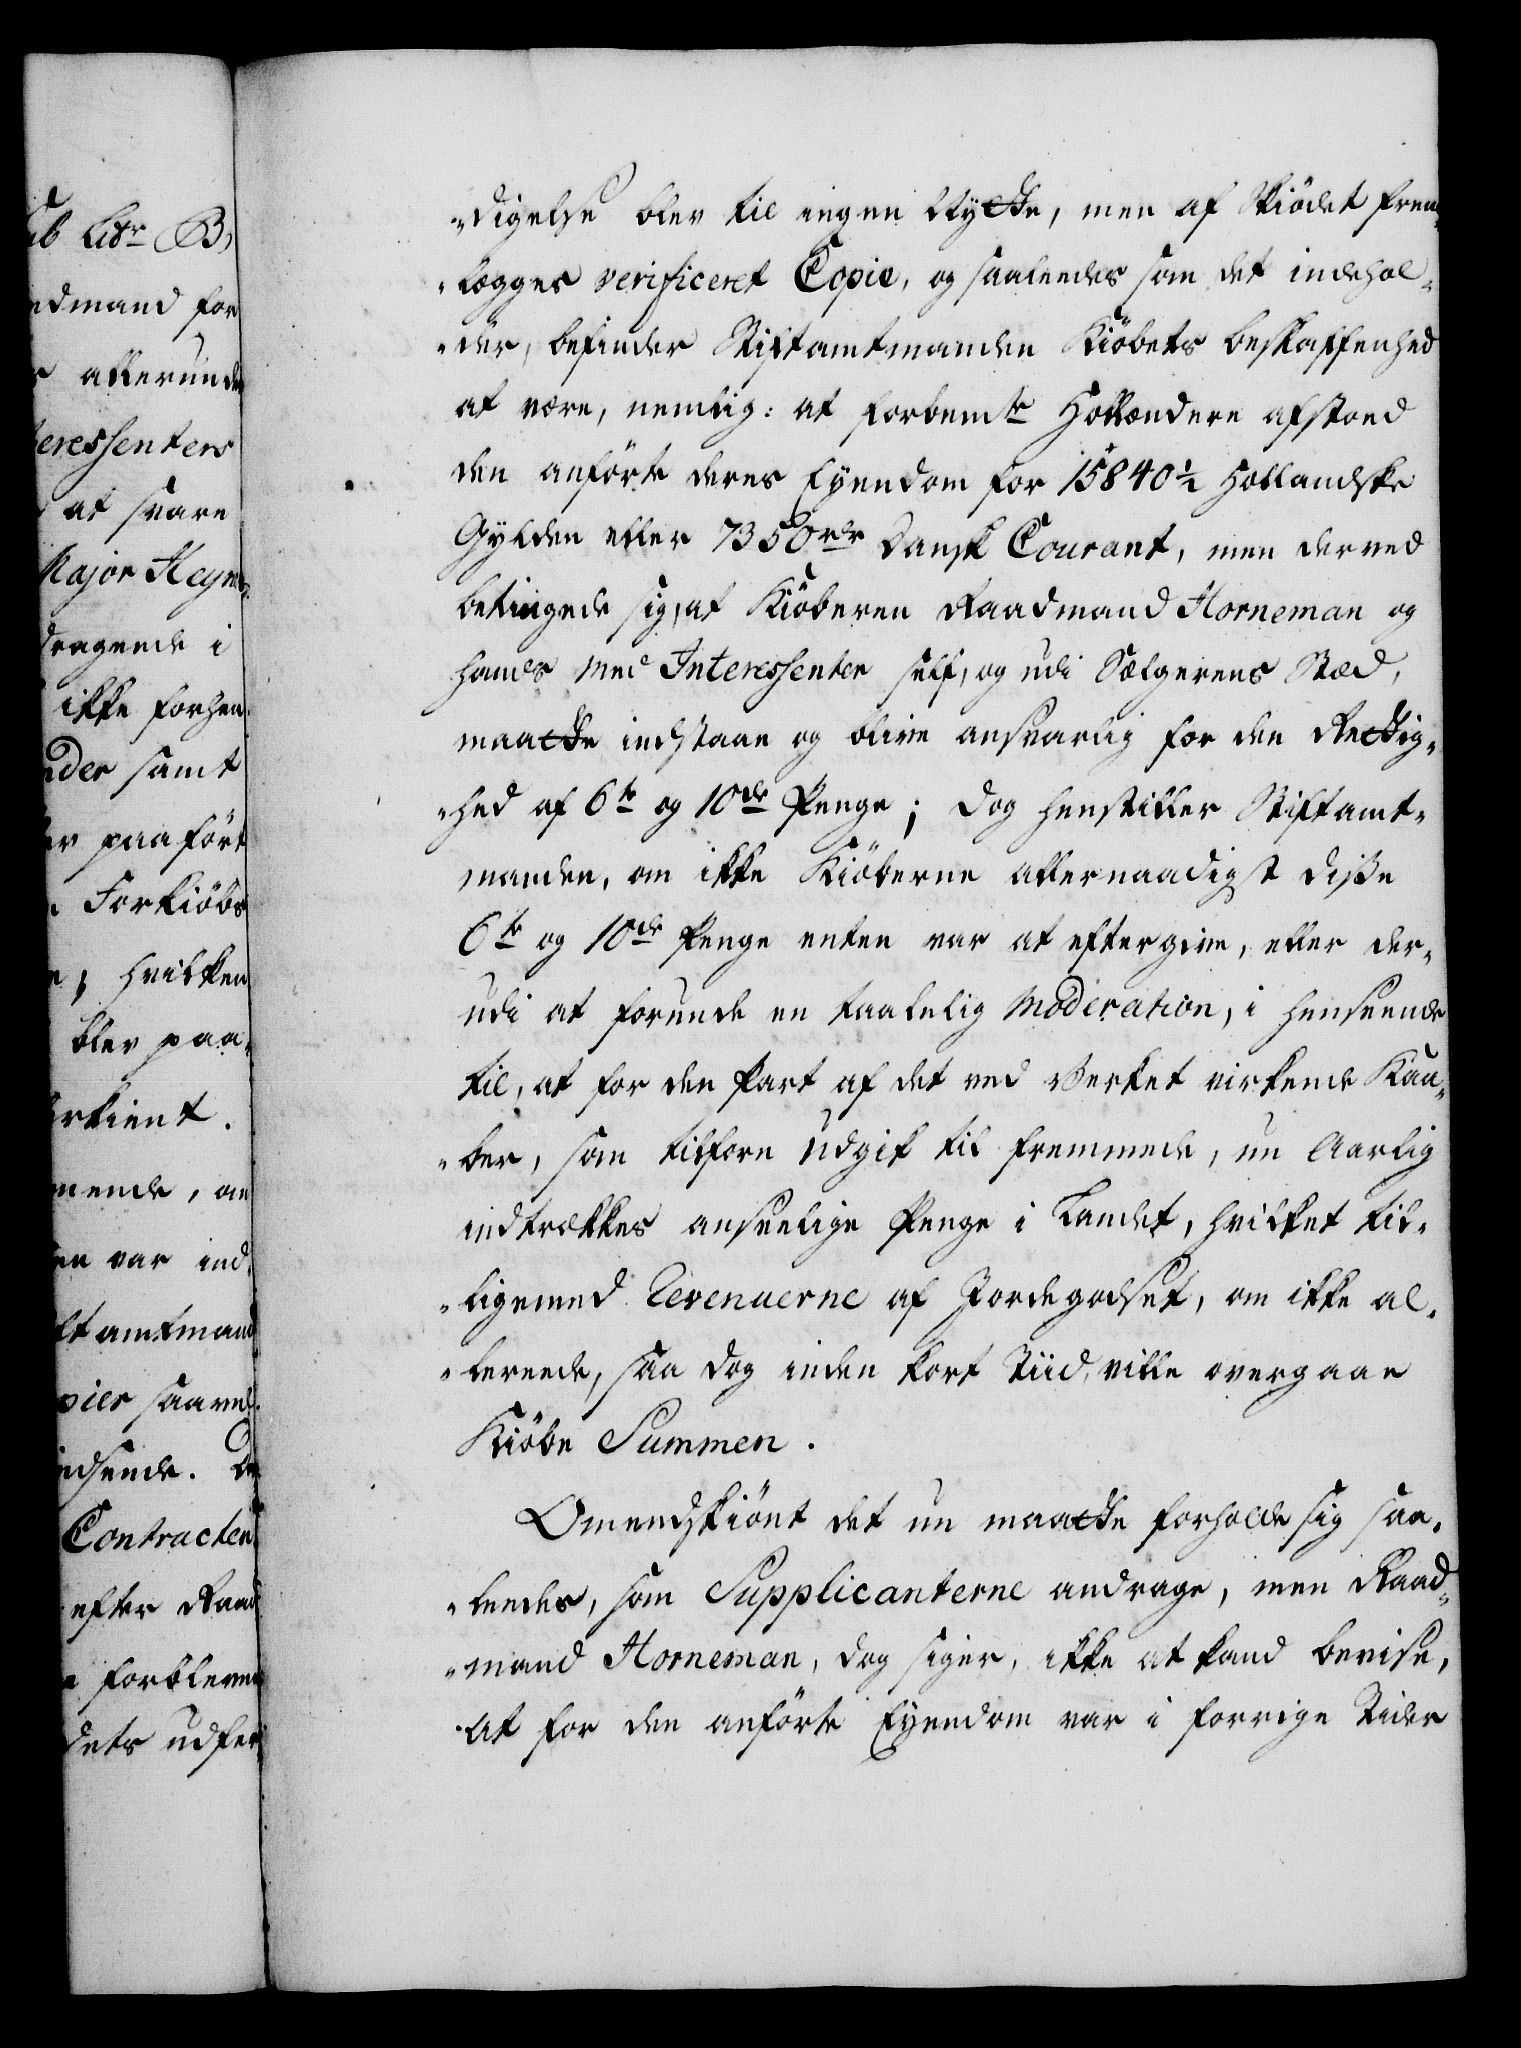 ub Litr B,
edmand for
r allerunder
teressenters
at svare
Major Heyn-
dragende i
ikke forhen
nder samt
er paaført
n Forkiöbs
e, hvilken
blev paa-
erkient.
mende, an
en var ind-
ftamtmand
pier saavel
indsende. De
Contracten
efter Raad
n forbleven
dets udfer
-digelse blev til ingen Nytte, men af Skiödet frem-
-lægges verificeret Copie, og saaleedes som det indehol-
-der, befinder Stiftamtmanden Kiöbets beskaffenhed
at være, nemlig: at forbemte Hollændere afstoed
den anförte deres Eyendom for 15840½ Hollandske
Gylden eller 7350 rdr Dansk Courant, men derved
betingede sig, at Kiöberen Raadmand Horneman og
hands Med Interessenter self, og udi Sælgerens Stæd,
maatte indstaae og blive ansvarlig for den Rettig-
-hed af 6te og 10de Penge; dog henstiller Stiftamt-
manden, om ikke Kiöberne allernaadigst disse
6te og 10de Penge enten var at eftergive, eller der-
udi at forunde en taalelig Moderation, i henseende
til, at for den Part af det ved Verket virkende Kaa-
-ber, som tilforn udgik til fremmede, nu Aarlig
indtrækkes anseelige Penge i Landet, hvilket til-
-ligemed Revenuerne af Jordegodset, om ikke al-
-lereede, saa dog inden kort Tiid, ville overgaae
Kiöbe Summen.
Omendskiönt det nu maatte forholde sig saa-
-leedes, som Supplicanterne andrage, men Raad-
-mand Horneman, dog siger, ikke at kand bevise,
at for den anförte Eyendom var i forrige Tider